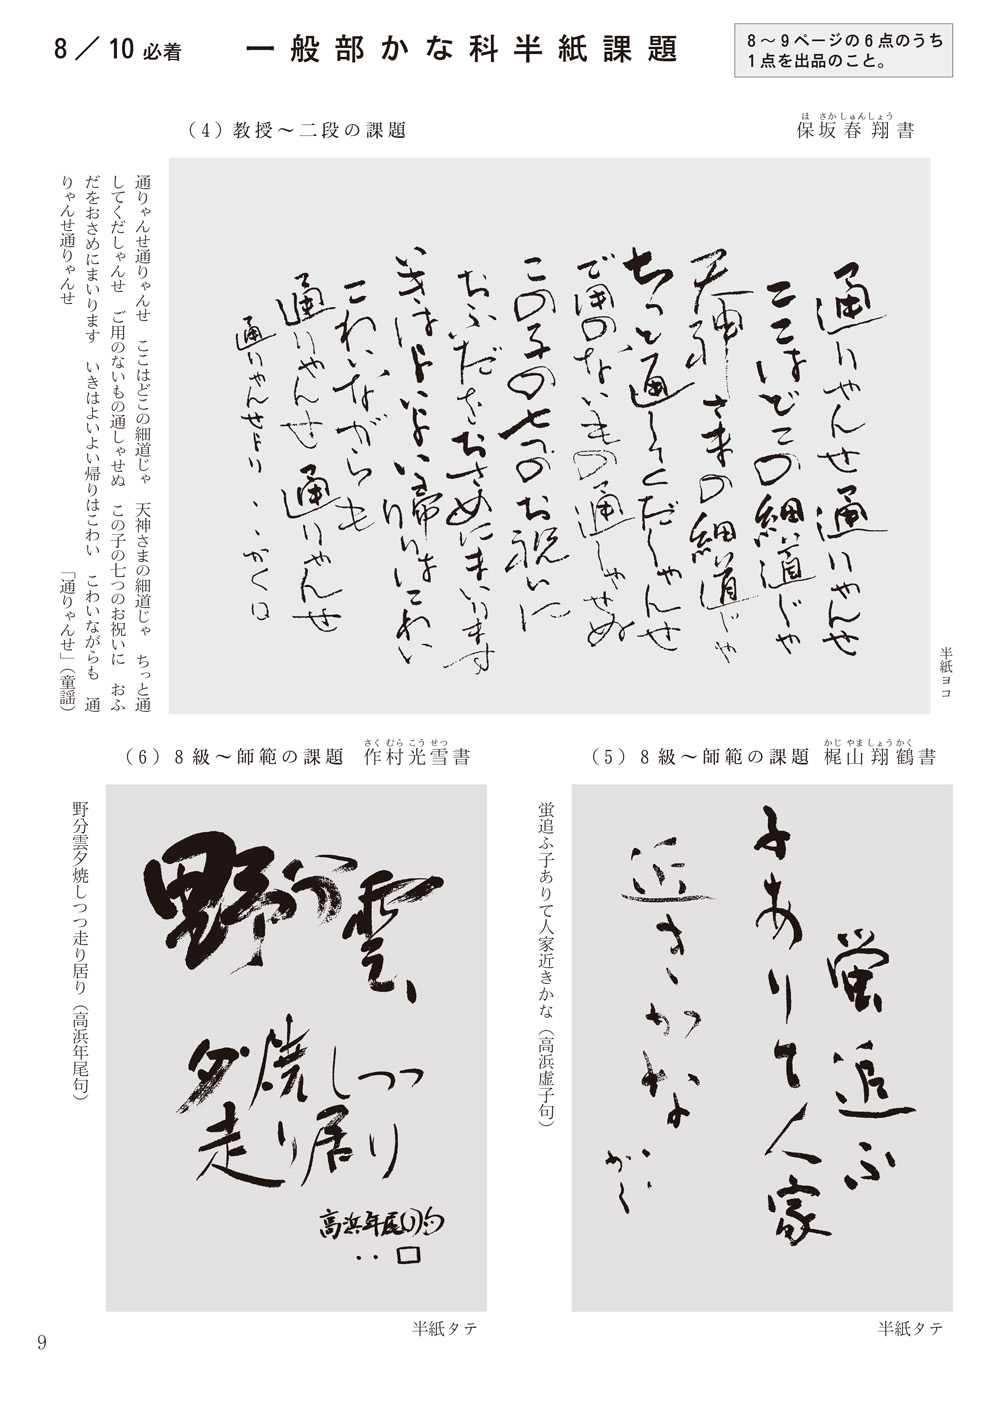 8／10必着
一般部かな科半紙課題
8～9ページの6点のうち
1点を出品のこと。
（4）教授～二段の課題
保坂春翔書
ほさかしゅんしょう
通りゃんせ通りゃんせ
ここはどこの細道じゃ
天神さまの細道じゃ
ちっと通してくだしゃんせ
で用のないもの通しゃせぬ
この子の七つのお祝いに
おふだをおさめにまいります
いきはよいよい帰りはこわい
こわいながらも
通りゃんせ通りゃんせ
通りゃんせより・・かく□
半紙ヨコ
通りゃんせ通りゃんせ　ここはどこの細道じゃ　天神さまの細道じゃ　ちっと通
してくだしゃんせ　ご用のないもの通しゃせぬ　この子の七つのお祝いに　おふ
だをおさめにまいります　いきはよいよい帰りはこわい　こわいながらも　通
りゃんせ通りゃんせ
「通りゃんせ」（童謡）
（5）8級～師範の課題
梶山翔鶴書
かじやましょうかく
蛍追ふ
子ありて人家
近きかな
・・かく
蛍追ふ子ありて人家近きかな（高浜虚子句）
半紙タテ
（6）8級～師範の課題
作村光雪書
さくむらこうせつ
野分雲、
夕焼しつつ
走り居り
高浜年尾の句
・・□
野分雲夕焼しつつ走り居り（高浜年尾句）
半紙タテ
9